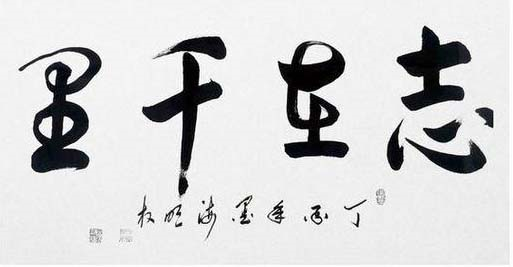 志在千里
丁年墨海明权